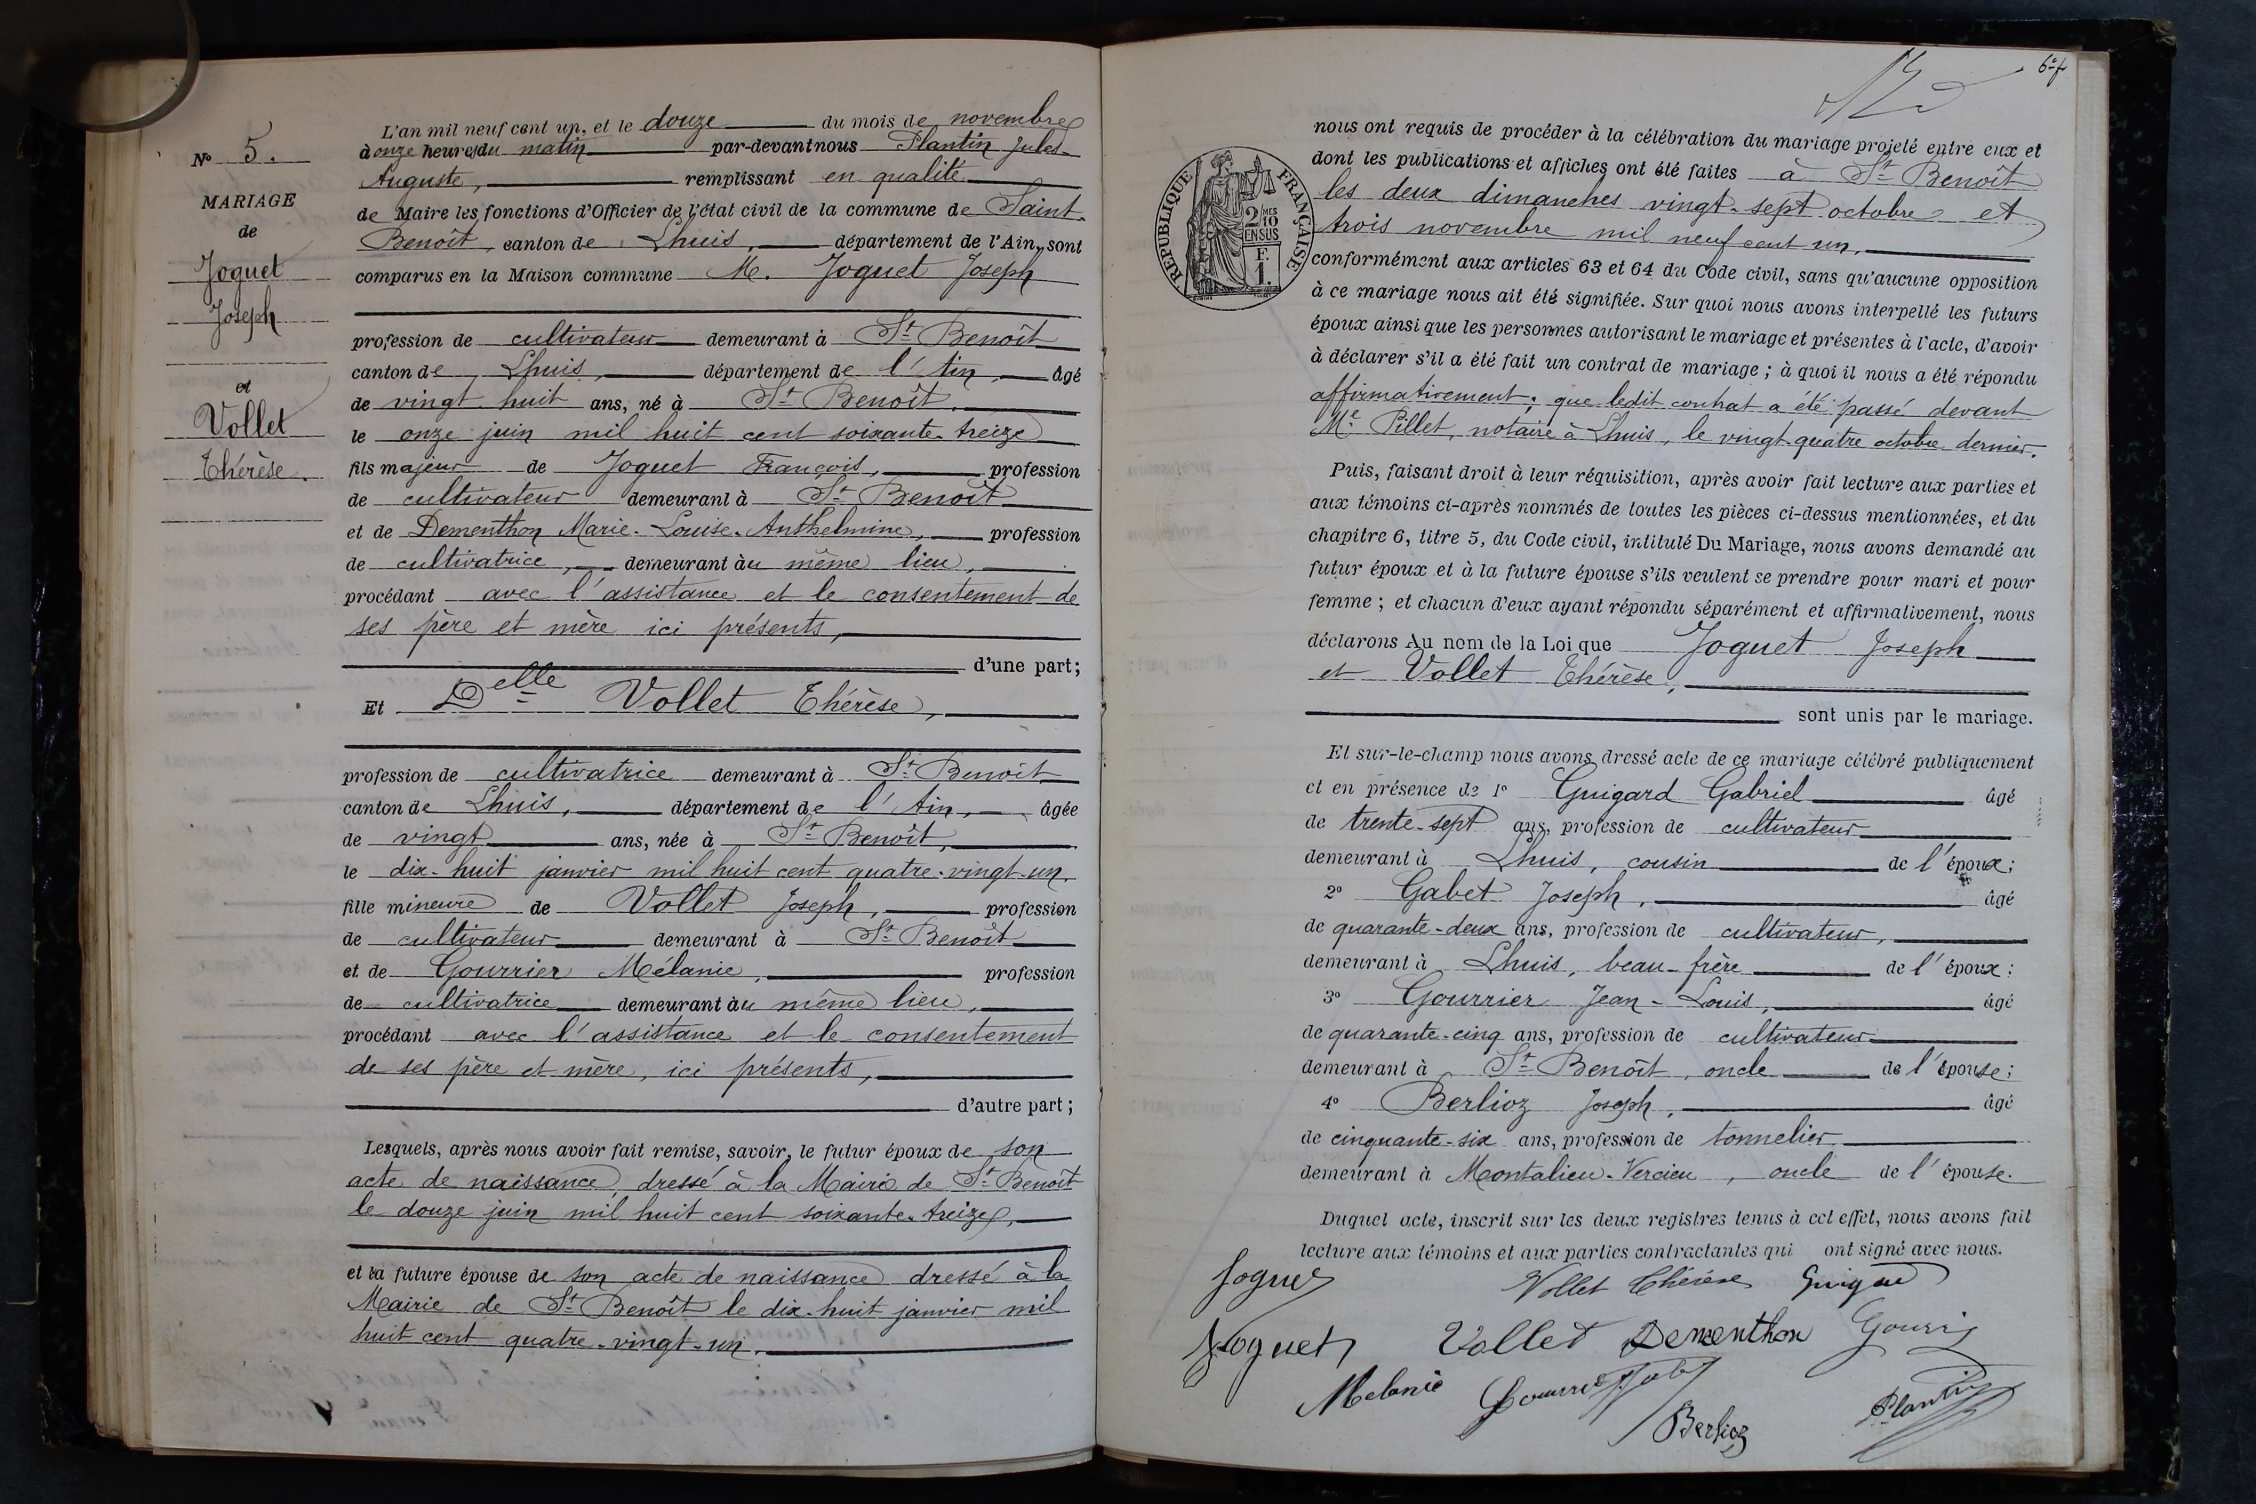 N° 5.
MARIAGE
de
Joguet
Joseph
et
Vollet
Thérèse.
L'an mil neuf cent un, et le douze du mois de novembre
à onze heures du matin par-devant nous Plantin Jules
Auguste, remplissant en qualité
de Maire les fonctions d'Officier de l'état civil de la commune de Saint-
Benoît, canton de Lhuis, département de l'Ain, sont
comparus en la Maison commune M. Joguet Joseph
profession de cultivateur demeurant à St Benoît
canton de Lhuis, département de l'Ain, âgé
de vingt-huit ans, né à St Benoît,
le onze juin mil huit cent soixante-treize
fils majeur de Joguet François, profession
de cultivateur demeurant à St Benoît
et de Dementhon Marie-Louise-Anthelmine, profession
de cultivatrice, demeurant au même lieu,
procédant avec l'assistance et le consentement de
ses père et mère ici présents,
d'une part;
Et Delle Vollet Thérèse,
profession de cultivatrice demeurant à St Benoît
canton de Lhuis, département de l'Ain, âgée
de vingt ans, née à St Benoît,
le dix-huit janvier mil huit cent quatre-vingt-un,
fille mineure de Vollet Joseph, profession
de cultivateur demeurant à St Benoît
et de Gourrier Mélanie, profession
de cultivatrice demeurant au même lieu,
procédant avec l'assistance et le consentement
de ses père et mère, ici présents,
d'autre part;
Lesquels, après nous avoir fait remise, savoir, le futur époux de son
acte de naissance, dressé à la Mairie de St Benoît
le douze juin mil huit cent soixante-treize,
et la future épouse de son acte de naissance dressé à la
Mairie de St Benoît le dix-huit janvier mil
huit cent quatre-vingt-un.
6e f
RÉPUBLIQUE FRANÇAISE
2/10 MES
EN SUS
F.
1.
nous ont requis de procéder à la célébration du mariage projeté entre eux et
dont les publications et affiches ont été faites à St Benoît
les deux dimanches vingt-sept octobre et
trois novembre mil neuf cent un,
conformément aux articles 63 et 64 du Code civil, sans qu'aucune opposition
à ce mariage nous ait été signifiée. Sur quoi nous avons interpellé les futurs
époux ainsi que les personnes autorisant le mariage et présentes à l'acte, d'avoir
à déclarer s'il a été fait un contrat de mariage; à quoi il nous a été répondu
affirmativement; que ledit contrat a été passé devant
Me Pillet, notaire à Lhuis, le vingt-quatre octobre dernier.
Puis, faisant droit à leur réquisition, après avoir fait lecture aux parties et
aux témoins ci-après nommés de toutes les pièces ci-dessus mentionnées, et du
chapitre 6, titre 5, du Code civil, intitulé Du Mariage, nous avons demandé au
futur époux et à la future épouse s'ils veulent se prendre pour mari et pour
femme; et chacun d'eux ayant répondu séparément et affirmativement, nous
déclarons Au nom de la Loi que Joguet Joseph
et Vollet Thérèse,
sont unis par le mariage.
Et sur-le-champ nous avons dressé acte de ce mariage célébré publiquement
et en présence de 1° Guigard Gabriel âgé
de trente-sept ans, profession de cultivateur
demeurant à Lhuis, cousin de l'époux;
2° Gabet Joseph, âgé
de quarante-deux ans, profession de cultivateur,
demeurant à Lhuis, beau-frère de l'époux;
3° Gourrier Jean-Louis, âgé
de quarante-cinq ans, profession de cultivateur
demeurant à St Benoît, oncle de l'épouse;
4° Berlioz Joseph, âgé
de cinquante-six ans, profession de tonnelier
demeurant à Montalieu-Vercieu, oncle de l'épouse.
Duquel acte, inscrit sur les deux registres tenus à cet effet, nous avons fait
lecture aux témoins et aux parties contractantes qui ont signé avec nous.
Joguet Vollet Thérèse Guigard
Joguet Vollet Dementhon Gourrier
Melanie Gourrier Gabet
Berlioz Plantin